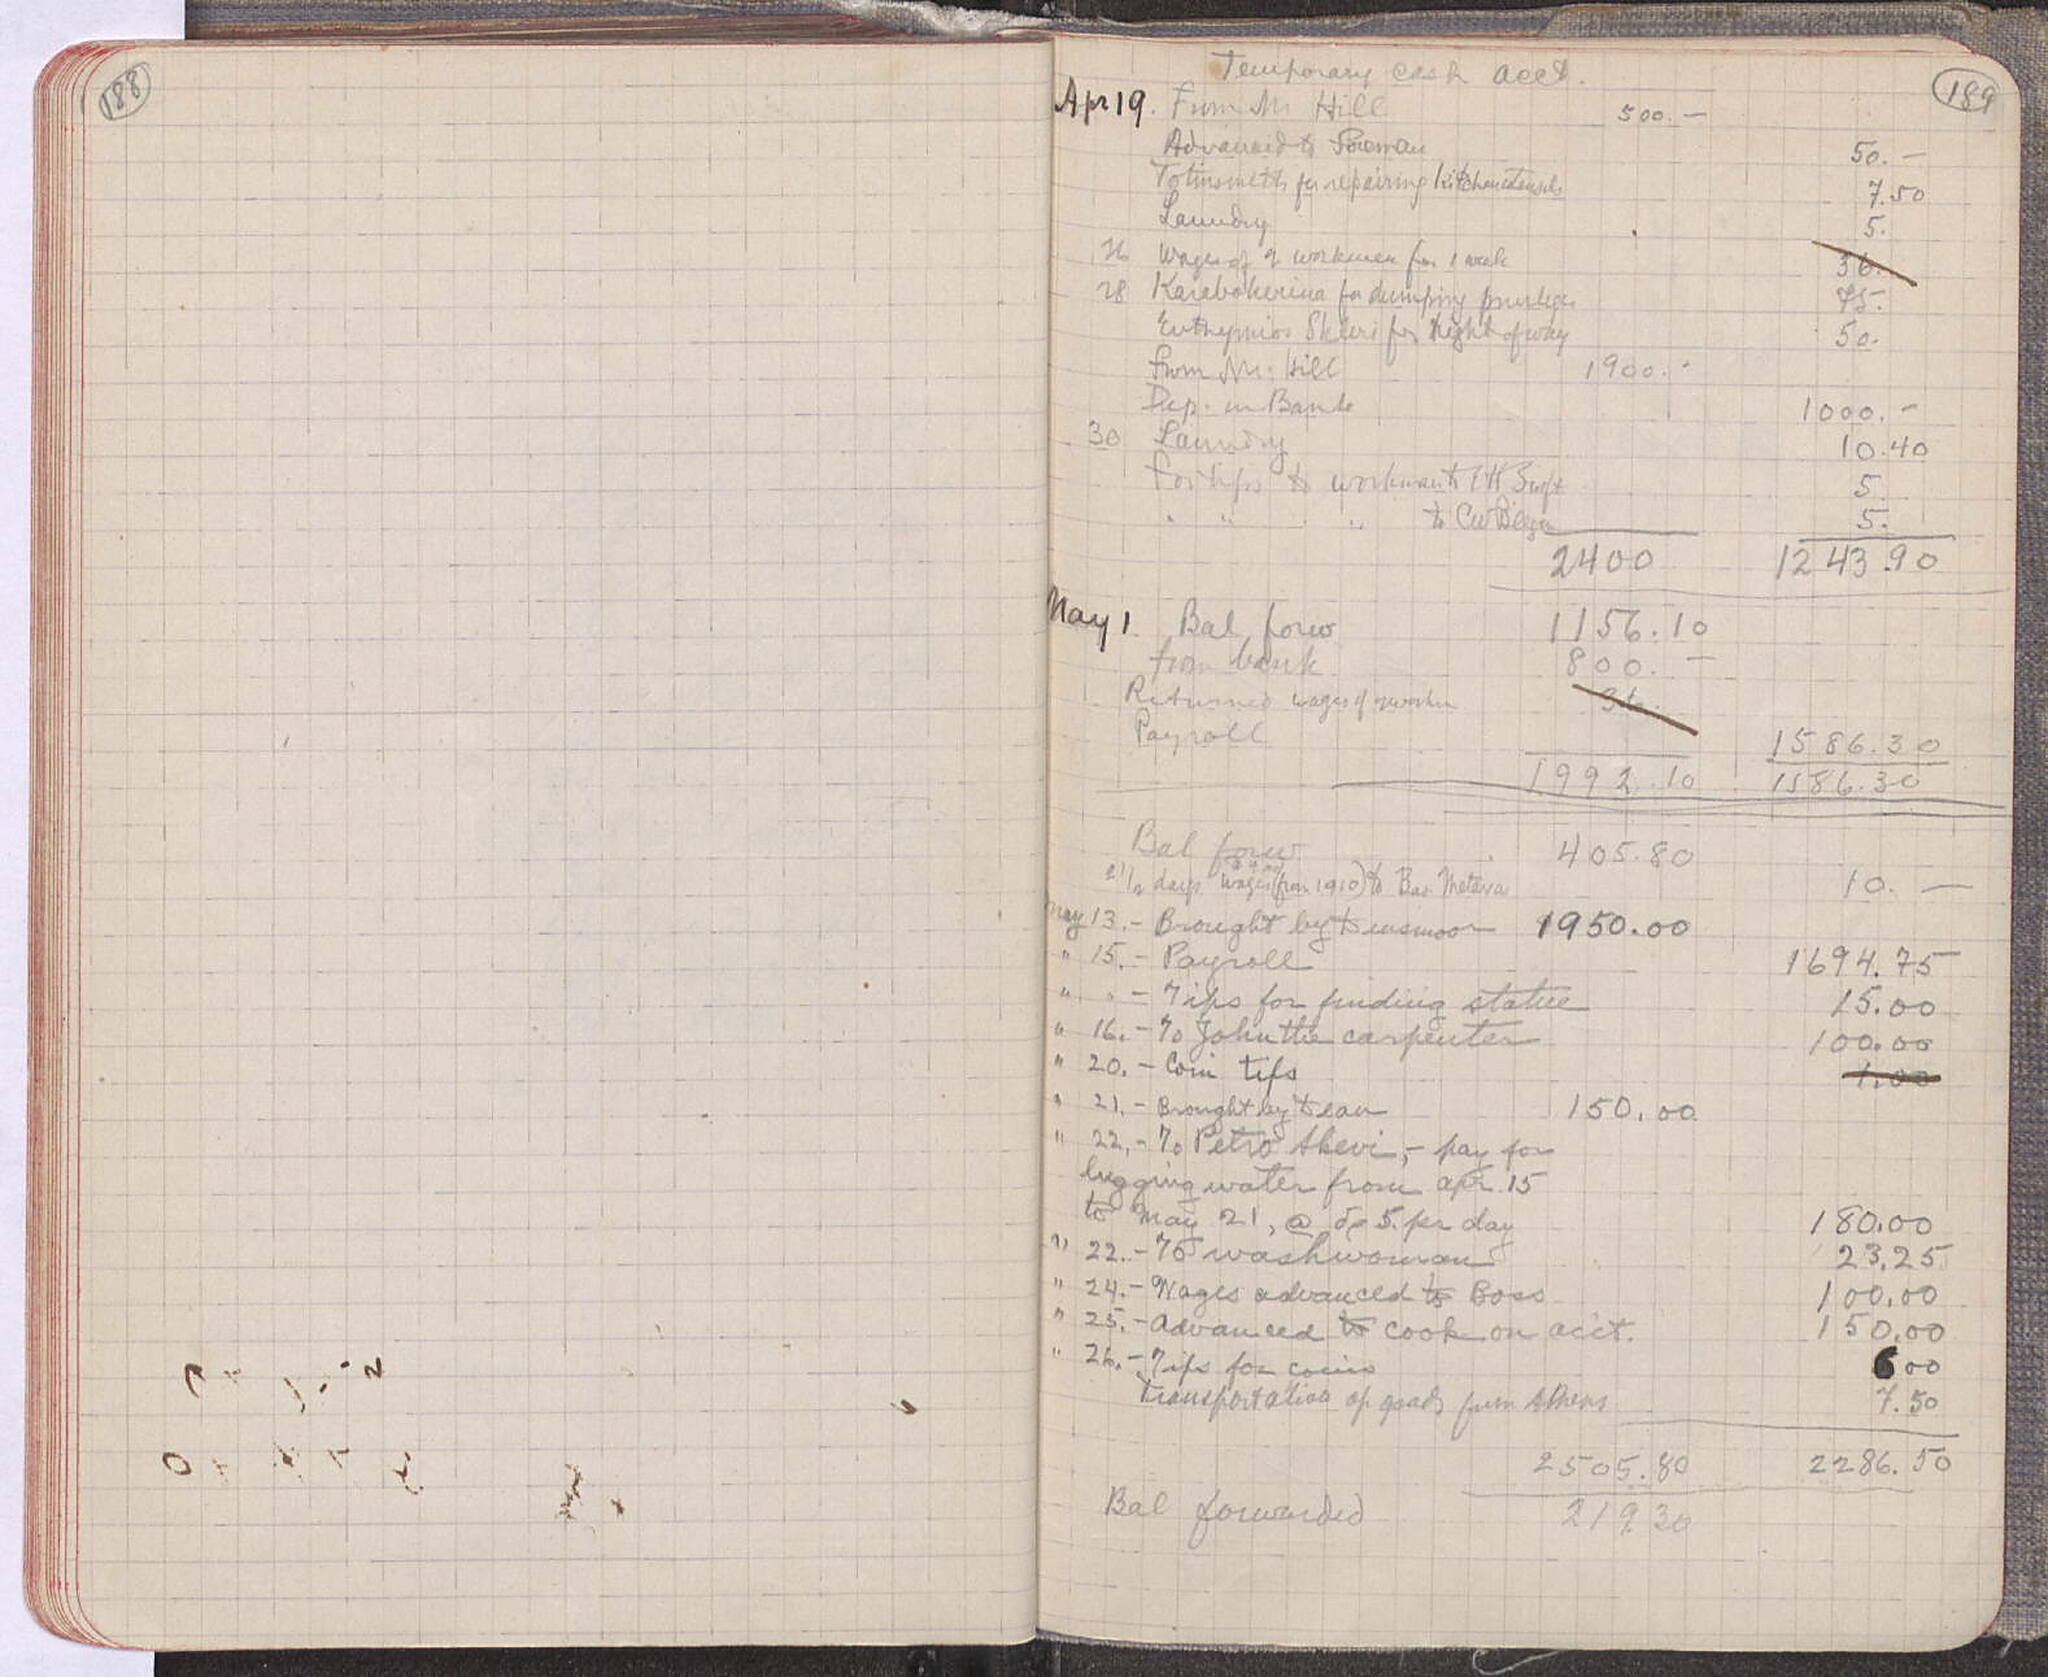 188
189
Temporary cash acct.
Apr 19. From Mr Hill 500.—
Advanced to Foreman 50.—
To tinsmith for repairing kitchen utensils 7.50
Laundry 5.
26 Wages of 9 workmen for 1 week 36.
28 Karabokerina for dumping privileges 75.
Euthymios Skleri for right of way 50.
From Mr. Hill 1900.-
Dep. in Bank 1000.-
30 Laundry 10.40
For tips to workman to EH Swift 5.
" " " to CW Blegen 5.
2400 1243.90
May 1 Bal forw 1156.10
from bank 800.—
Returned wages of 36.
Payroll 1586.30
1992.10 1586.30
Bal forw 405.80
2 1/2 days wages (from 1910) to Bas. Metaxa 10.—
May 13.- Brought by Dinsmoor 1950.00
" 15.- Payroll 1694.75
" " - Tips for finding statue 15.00
" 16.- To John the carpenter 100.00
" 20.- Coin tips 1.00
" 21.- Brought by Dean 150.00
" 22.- To Petro Skevi,- pay for
lugging water from Apr. 15
to May 21, @ 5. per day 180.00
" 22.- To washwoman 23.25
" 24.- Wages advanced to Boss 100.00
" 25.- Advanced to cook on acct. 150.00
" 26.- Tips for coins 600
Transportation of goods from Athens 7.50
2505.80 2286.50
Bal forwarded 219 30